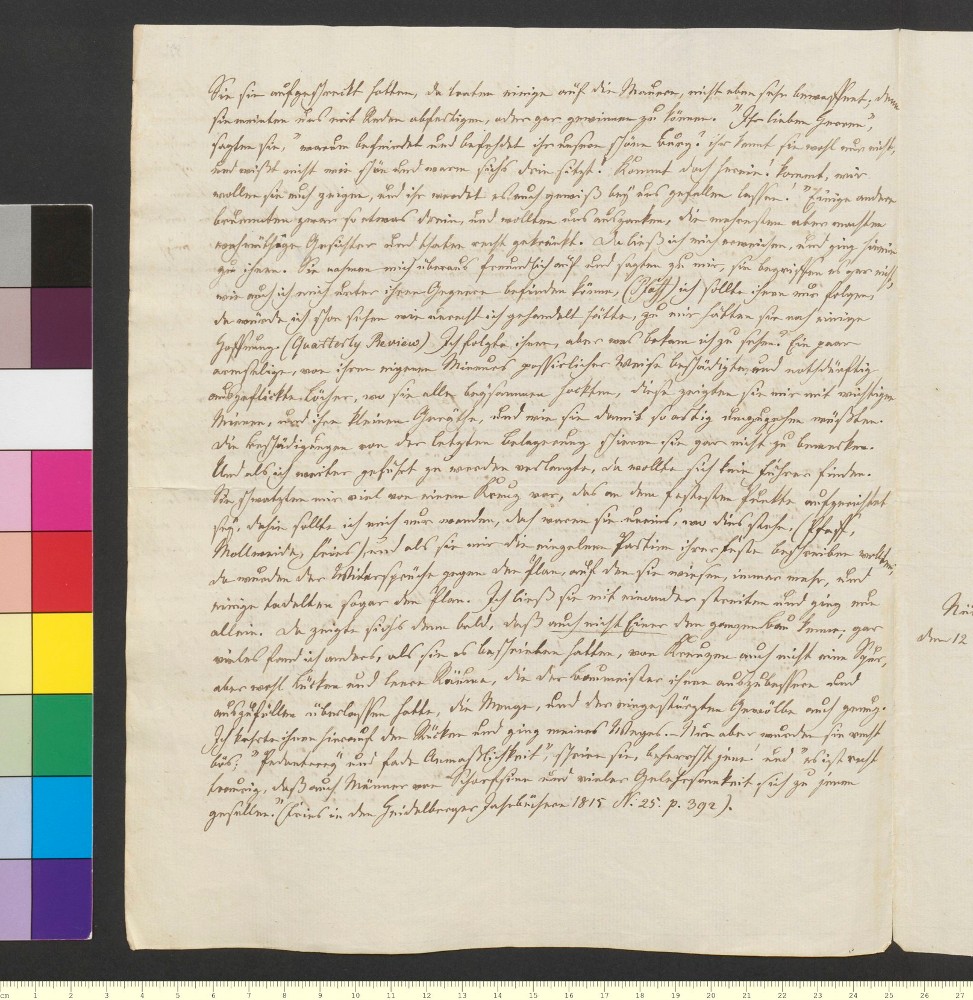 Sie sie aufgeschreckt hatten, da traten einige auf die Mauern, nicht eben sehr bewaffnet, denn
sie meinten uns mit Reden abfertigen, oder gar gewinnen zu können. "Ihr lieben Herren",
sagten sie, "warum befeindet und befehdet ihr unsere schöne Burg? ihr kennt sie wohl nur nicht,
und wißt nicht wie schön und warm sichs drin sitzt! Kommt doch herein! kommt, wir
wollen sie euch zeigen, und ihr werdet es euch gewiß bey uns gefallen lassen!" Einige andere
brummten zwar so etwas drein, und wollten uns auszanken, die mehrsten aber machten
wehmüthige Gesichter und thaten recht gekränkt. Da ließ ich mich erweichen, und ging hinein
zu ihnen. Sie nahmen mich überaus freundlich auf und sagten zu mir, sie begriffen es gar nicht,
wie auch ich mich unter ihren Gegnern befinden könne, (Pfaff) ich sollte ihnen nur folgen,
da würde ich schon sehen wie unrecht ich gehandelt hätte, zu mir hätten sie noch einige
Hoffnung. (Quatterly Review) Ich folgte ihnen, aber was bekam ich zu sehen? Ein paar
armselige, von ihren eigenen Mineurs possirlicher Weise beschädigte, und nothdürftig
ausgeflickte Löcher, wo sie alle beysammen hockten, diese zeigten sie mir mit wichtigen
Mienen, und ihre kleinen Geräthe, und wie sie damit so artig umzugehen wüßten.
Die Beschädigungen von der letzten Belagerung schienen sie gar nicht zu bemerken.
Und als ich weiter geführt zu werden verlangte, da wollte sich kein Führer finden.
Sie schwatzten mir viel von einem Kreuz vor, das an dem festesten Punkte aufgerichtet
sey, dahin sollte ich mich nur wenden, doch waren sie uneins, wo dies stehe, (Pfaff,
Mollweide, Fries) und als sie mir die einzelnen Partien ihrer Feste beschreiben wollten,
da wurden der Widersprüche gegen den Plan, auf den sie wiesen, immer mehr, und
einige tadelten sogar den Plan. Ich ließ sie mit einander streiten und ging nun
allein. Da zeigte sichs denn bald, daß auch nicht Einer den ganzen Bau kenne; gar
vieles fand ich anders, als sie es beschrieben hatten, von Kreuzen auch nicht eine Spur,
aber wohl Lücken und leere Räume, die der Baumeister ihnen auszubessern und
auszufüllen überlassen hatte, die Menge, und der eingestürzten Gewölbe auch genug.
Ich kehrte ihnen hierauf den Rücken und ging meines Weges. Nun aber wurden sie recht
bös; "Pedanterey und fade Anmaßlichkeit", schrien sie, beherrscht jene! und "es ist recht
traurig, daß auch Männer von Scharfsinn und vieler Gelehrsamkeit sich zu jenen
gesellen." (Fries in den Heidelberger Jahrbüchern 1815 N. 25. p. 392).
den 12